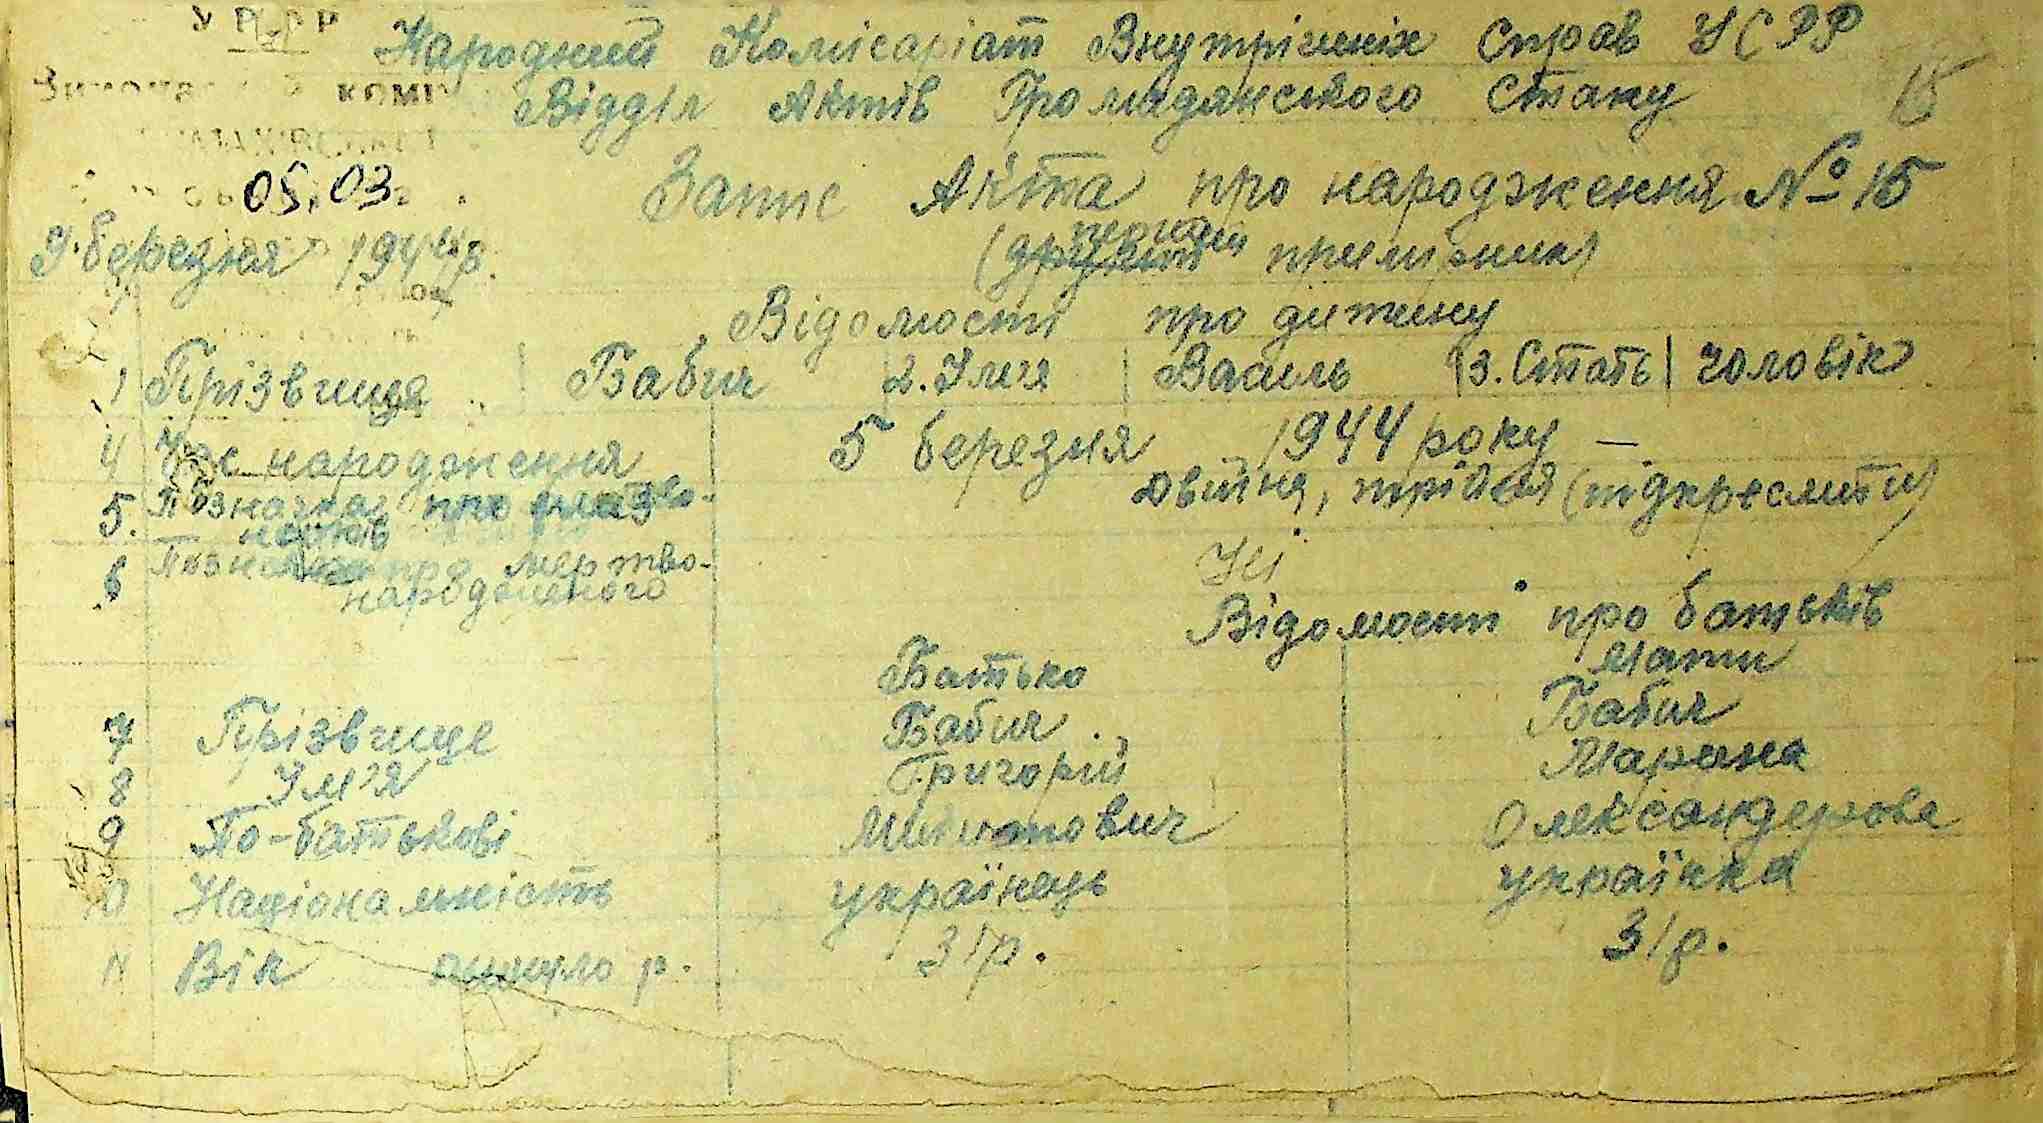 УРСР
Народний Комісаріат Внутрішніх Справ УСРР
Виконавчий комі
Відділ Актів Громадянського Стану
15
05.03
Запис Акта про народження № 15
9 березня 1944 р.
(другий перший примірник)
Відомості про дитину
1 Прізвище | Бабич | 2. Ім'я | Василь | 3. Стать | чоловік
4 Час народження 5 березня 1944 року —
5. Позначка про двійня, трійня (підкреслити)
6 Позначка про мертво-
народженого Ні
Відомості про батьків
Батько Мати
7 Прізвище Бабич Бабич
8 Ім'я Григорій Марина
9 По-батькові Олександрова
10 Національність українець українка
11 Вік минуло р. 31р. 31р.